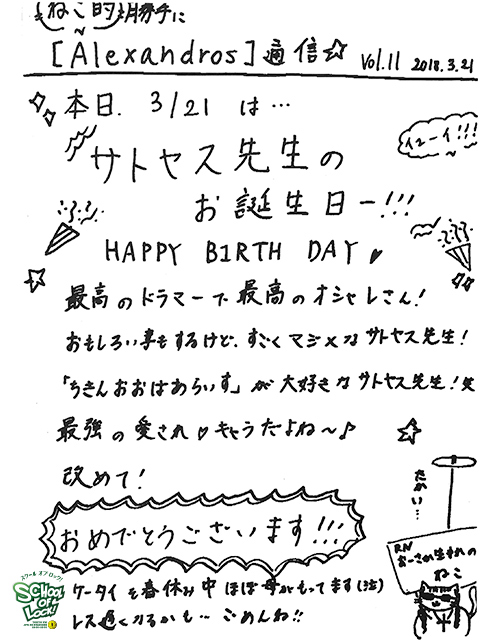 ねこ的 勝手に
[Alexandros]通信☆ Vol.11 2018.3.21
本日、3/21 は…
イェーイ!!!
サトヤス先生の
お誕生日ー!!!
HAPPY BIRTH DAY♥
最高のドラマーで最高のオシャレさん!
おもしろい事もするけど、すごくマジメなサトヤス先生!
「ちきんおおはあらいす」が大好きなサトヤス先生!笑
最強の愛され♡キャラだよね〜♪
改めて!
たかい…
おめでとうございます!!!
RN
おーさか生まれの
ねこ
ケータイを春休み中ほぼ母がもってます(泣)
レス遅くなるかも…ごめんね!!
スクール オブ ロック!
SCHOOL OF LOCK!